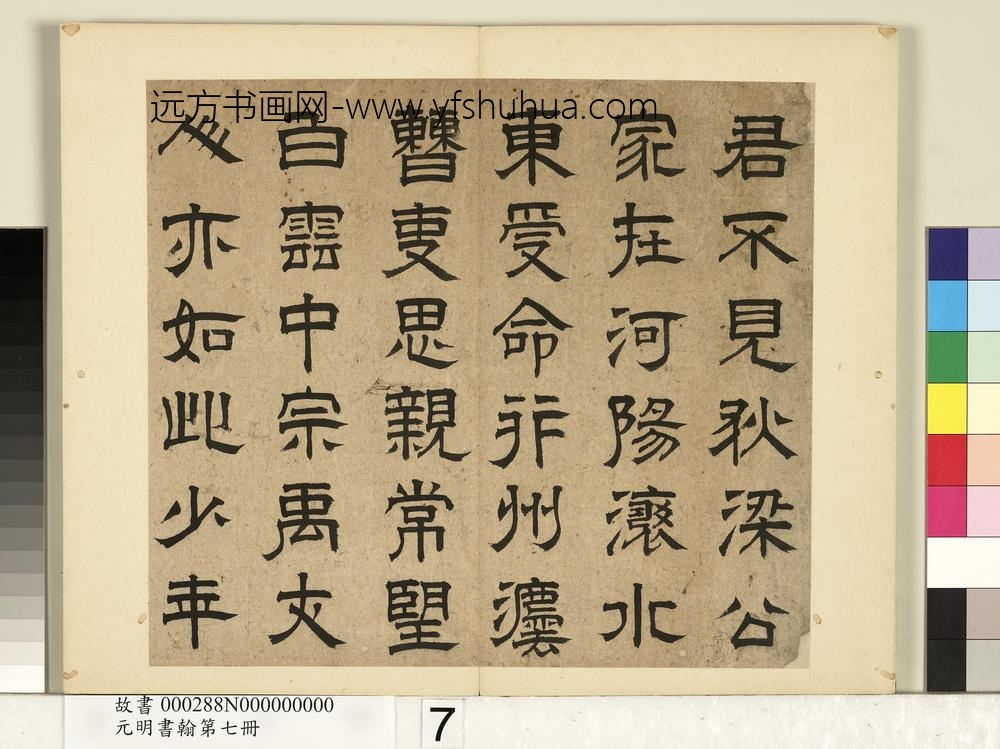 远方书画网-www.yfshuhua.com
君不見狄梁公
家在河陽瀼水
東受命并州灋
曹吏思親常望
白雲中宗禹丈
人亦如此少年
故書 000288N000000000
元明書翰第七冊
7